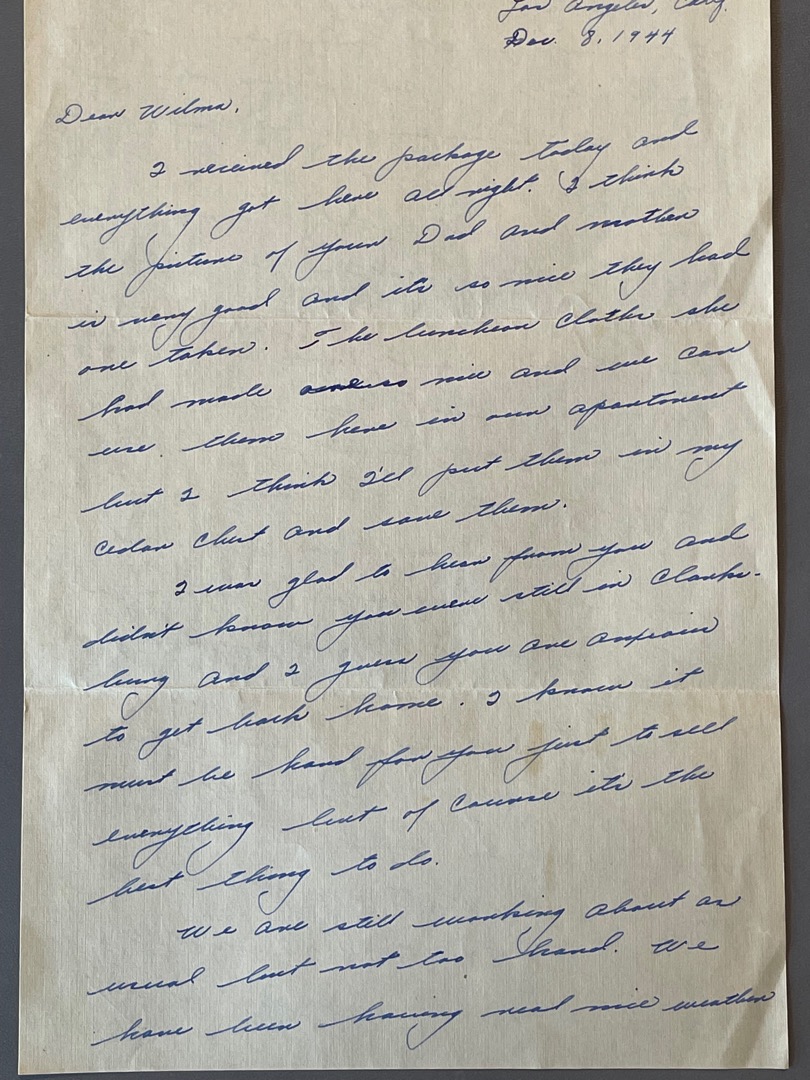 Los Angeles, Calif.
Dec. 8, 1944
Dear Wilma,
I received the package today and
everything got here all right. I think
the picture of your Dad and mother
is very good and it's so nice they had
one taken. The luncheon cloths she
had made are so nice and we can
use them here in our apartment
but I think I'll put them in my
cedar chest and save them.
I was glad to hear from you and
didn't know you were still in Clarks-
burg and I guess you are anxious
to get back home. I know it
must be hard for you just to sell
everything but of course it's the
best thing to do.
We are still working about as
usual but not too hard. We
have been having real nice weather